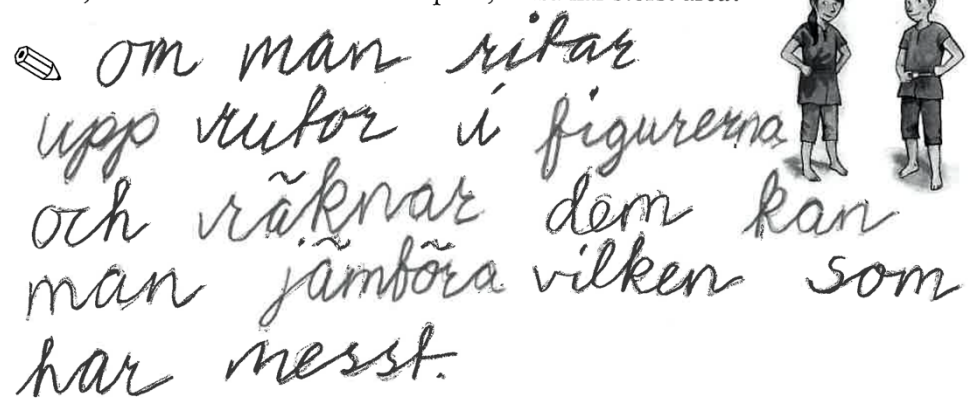 om man ritar
upp rutor i figurerna
och räknar dem kan
man jämföra vilken som
har messt.